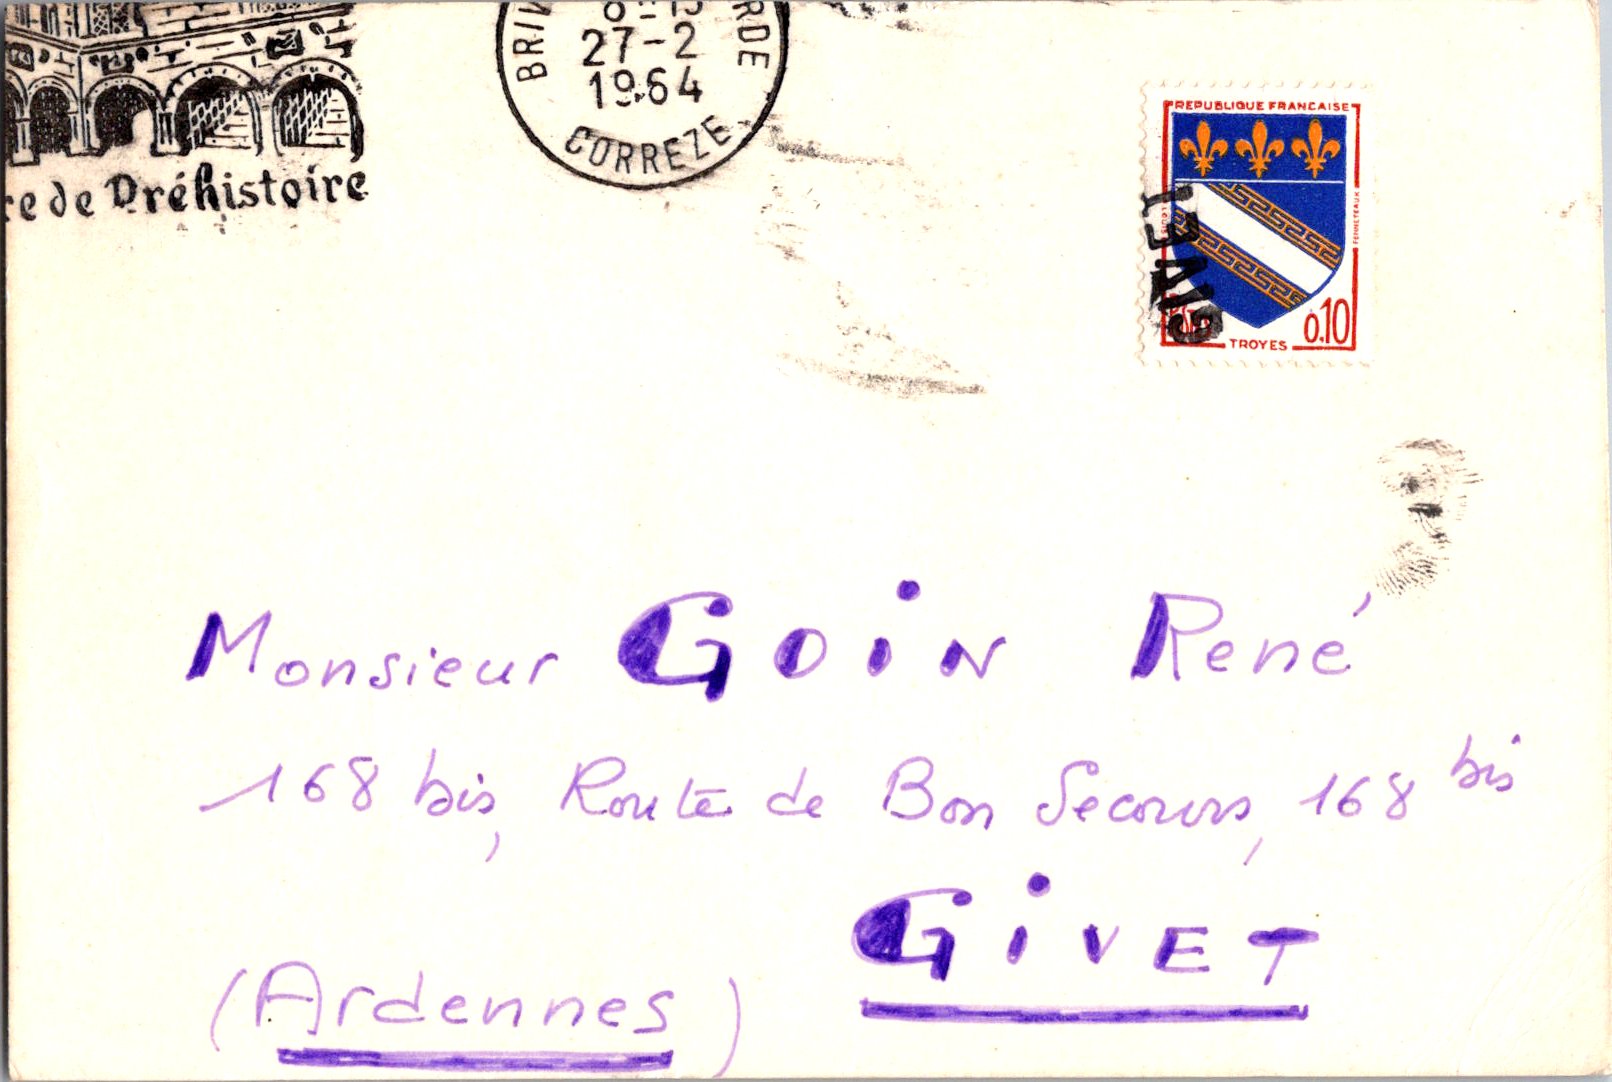 BRIV RDE
27-2
1964
CORREZE
re de Préhistoire
REPUBLIQUE FRANCAISE
GIVET
0,10
TROYES
Monsieur GOiN René
168 bis, Route de Bon Secours, 168 bis
GiVET
(Ardennes)